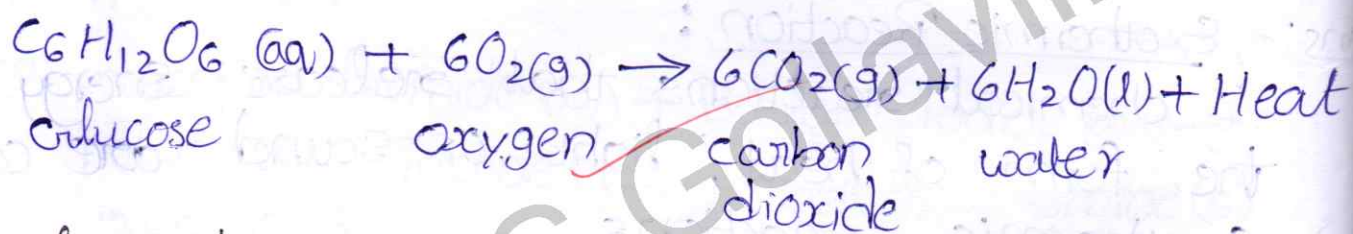 C6H12O6 (aq) + 6O2(g) → 6CO2(g) + 6H2O(l) + Heat
Glucose oxygen carbon water
dioxide